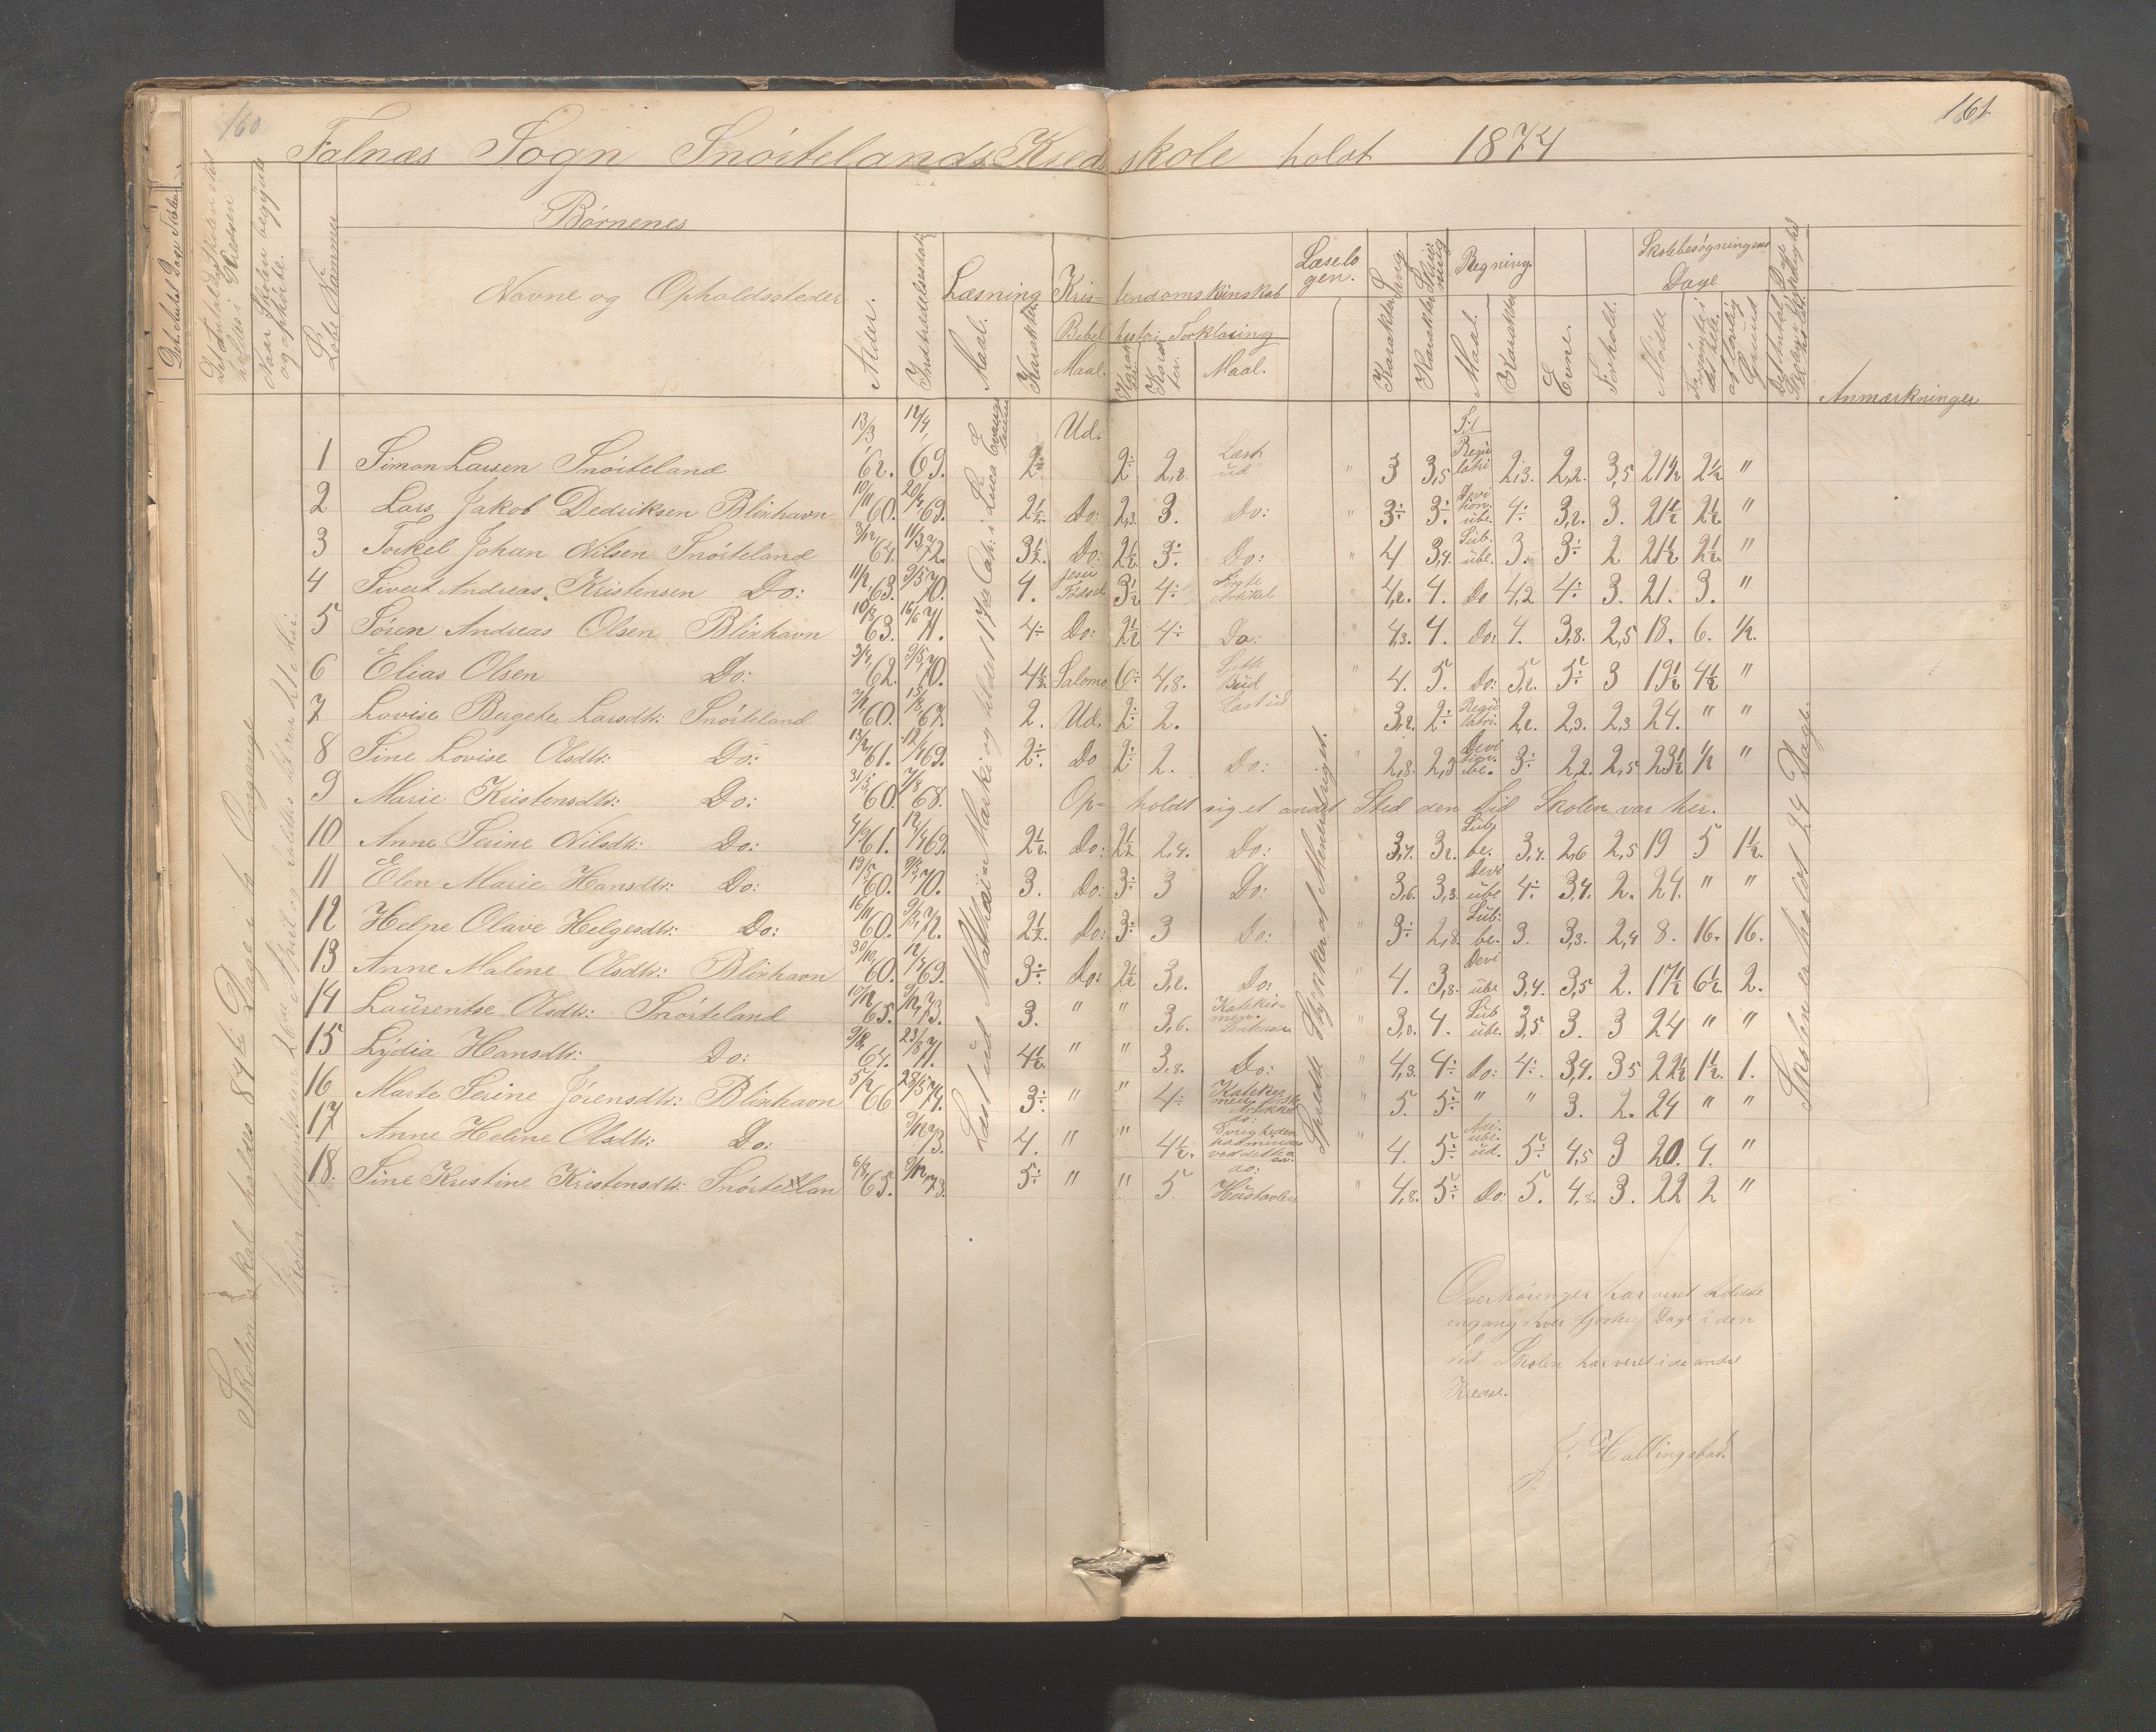 160
161.
Falnæs Sogn Snörtelands Kredsskole holdt 1874
Det Antal Dage Skolen skal holdes i Kredsen
Naar Skolen begyndte og ophørte.
Løbe Nummer
Børnenes
Navne og Opholdssteder
Alder.
Indtrædelsesdato
Læsning
Maal.
Karakter
Kristendomskunskab
Bibelhistori
Maal.
Karakter
Forklaring
Karakter.
Maal.
Læsebogen.
Sang.
Karakter
Skrivning
Karakter
Regning
Maal.
Karakter
Evne.
Forhold.
Skolebesøgningens Dage
Mødte
Forsømte i det hele.
af lovlig Grund
Anmærkninger
Skolen skal holdes 84 Dage i to Omgange
Læst ud Matthæi og Marki og tildet 17de Cap: i Lucæ Evangelium
Spredte Stykker af Menneskelivet.
Skolen er holdt 24 Dage.
1 Simon Larsen Snörteland 13/3 62. 12/4 69. 2÷ Ud. 2÷ 2,2. Læst ud " 3 3,5 Til Regulatri 2,3. 2,2. 3,5 21½ 2½ "
2 Lars Jakob Dedriksen Blixhavn 10/11 60. 20/4 69. 2½. Do: 2,3. 3. Do: " 3÷ 3÷ Devi sion. übe. 4÷ 3,2. 3. 21½ 2½ "
3 Torkel Johan Nilsen Snörteland 3/12 64. 11/3 72. 3½. Do: 2½ 3÷ Do: " 4 3,4. Sub. übe. 3. 3÷ 2 21½ 2½. "
4 Sivert Andreas Kristensen Do: 11/2 63. 9/5 70. 4. Jesu Fødsel 3½ 4÷ Første Artikel " 4,2. 4. Do 4,2 4÷ 3. 21. 3. "
5 Sören Andreas Olsen Blixhavn 10/2 63. 16/6 71. 4÷ Do: 2½ 4÷ Do: " 4,3. 4. Do: 4. 3,8. 2,5 18. 6. ½.
6 Elias Olsen Do: 3/4 62. 9/5 70. 4½. Salomo. 6÷ 4,8. Sjette Bud " 4. 5. Do: 5,2. 5÷ 3 19½ 4½ "
7 Lovise Bergete Larsdtr: Snörteland 7/1 60. 15/8 67. 2. Ud. 2÷ 2. Læst ud " 3,2. 2÷ Regulatri. 2,2. 2,3. 2,3 24. " "
8 Sine Lovise Olsdtr: Do: 13/2 61. 12/4 69. 2÷. Do 2÷ 2. Do: " 2,8. 2,3 Devi sion. übe. 3÷ 2,2. 2,5 23½ ½ "
9 Marie Kristensdtr: Do: 31/5 60. 7/8 68. Opholdt sig et andet Sted den Tid Skolen var her.
10 Anne Serine Nilsdtr: Do: 4/9 61. 12/4 69. 2½. Do: 2½ 2,4. Do: " 3,4. 3,2. Sub. be. 3,4. 2,6 2,5 19 5 1½.
11 Elen Marie Hansdtr: Do: 19/5 60. 9/5 70. 3. Do: 3÷ 3 Do: " 3,6. 3,3. Devi übe 4÷ 3,4. 2. 24. " "
12 Helne Olave Helgesdtr: Do: 16/11 60. 72. 2½. Do: 3÷ 3 Do: " 3÷ 2,8. Sub: be. 3. 3,3. 2,4 8. 16. 16.
13 Anne Malene Olsdtr: Blixhavn 30/10 60. 12/4 69. 3÷ Do: 2½ 3,2. Do: " 4. 3,8. Devi übe 3,4. 3,5 2. 17½ 6½. 2.
14 Laurentse Olsdtr: Snörteland 10/12 65. 9/12 73. 3. " " 3,6. " 3,8. 4. Sub übe. 3,5 3. 3 24 " "
15 Lydia Hansdtr: Do: 64. 23/8 71. 4½. " " 3,8. Do: " 4,3. 4÷ Do: 4÷. 3,4. 3,5 22½ 1½. 1.
16 Marte Serine Jörensdtr: Blixhavn 5/2 66 28/5 74. 3÷. " " 4÷ " 5. 5÷ " " 3. 2. 24 " "
17 Anne Heline Olsdtr: Do: 9/12 73. 4. " " 4½. " 4. 5÷ 5÷ 4,5 3 20. 4. "
18. Sine Kristine Kristensdtr: Snörtelan 6/2 65. 9/12 73. 5÷ " " 5. do: Hustavlen 4,8. 5÷ Do: 5. 4,8. 3. 22 2 "
Overhöringer har veret holdte
engang hver fjorten Dage i den
Tid Skolen har veret i de andre
Kredse.
J. Hallingstad.